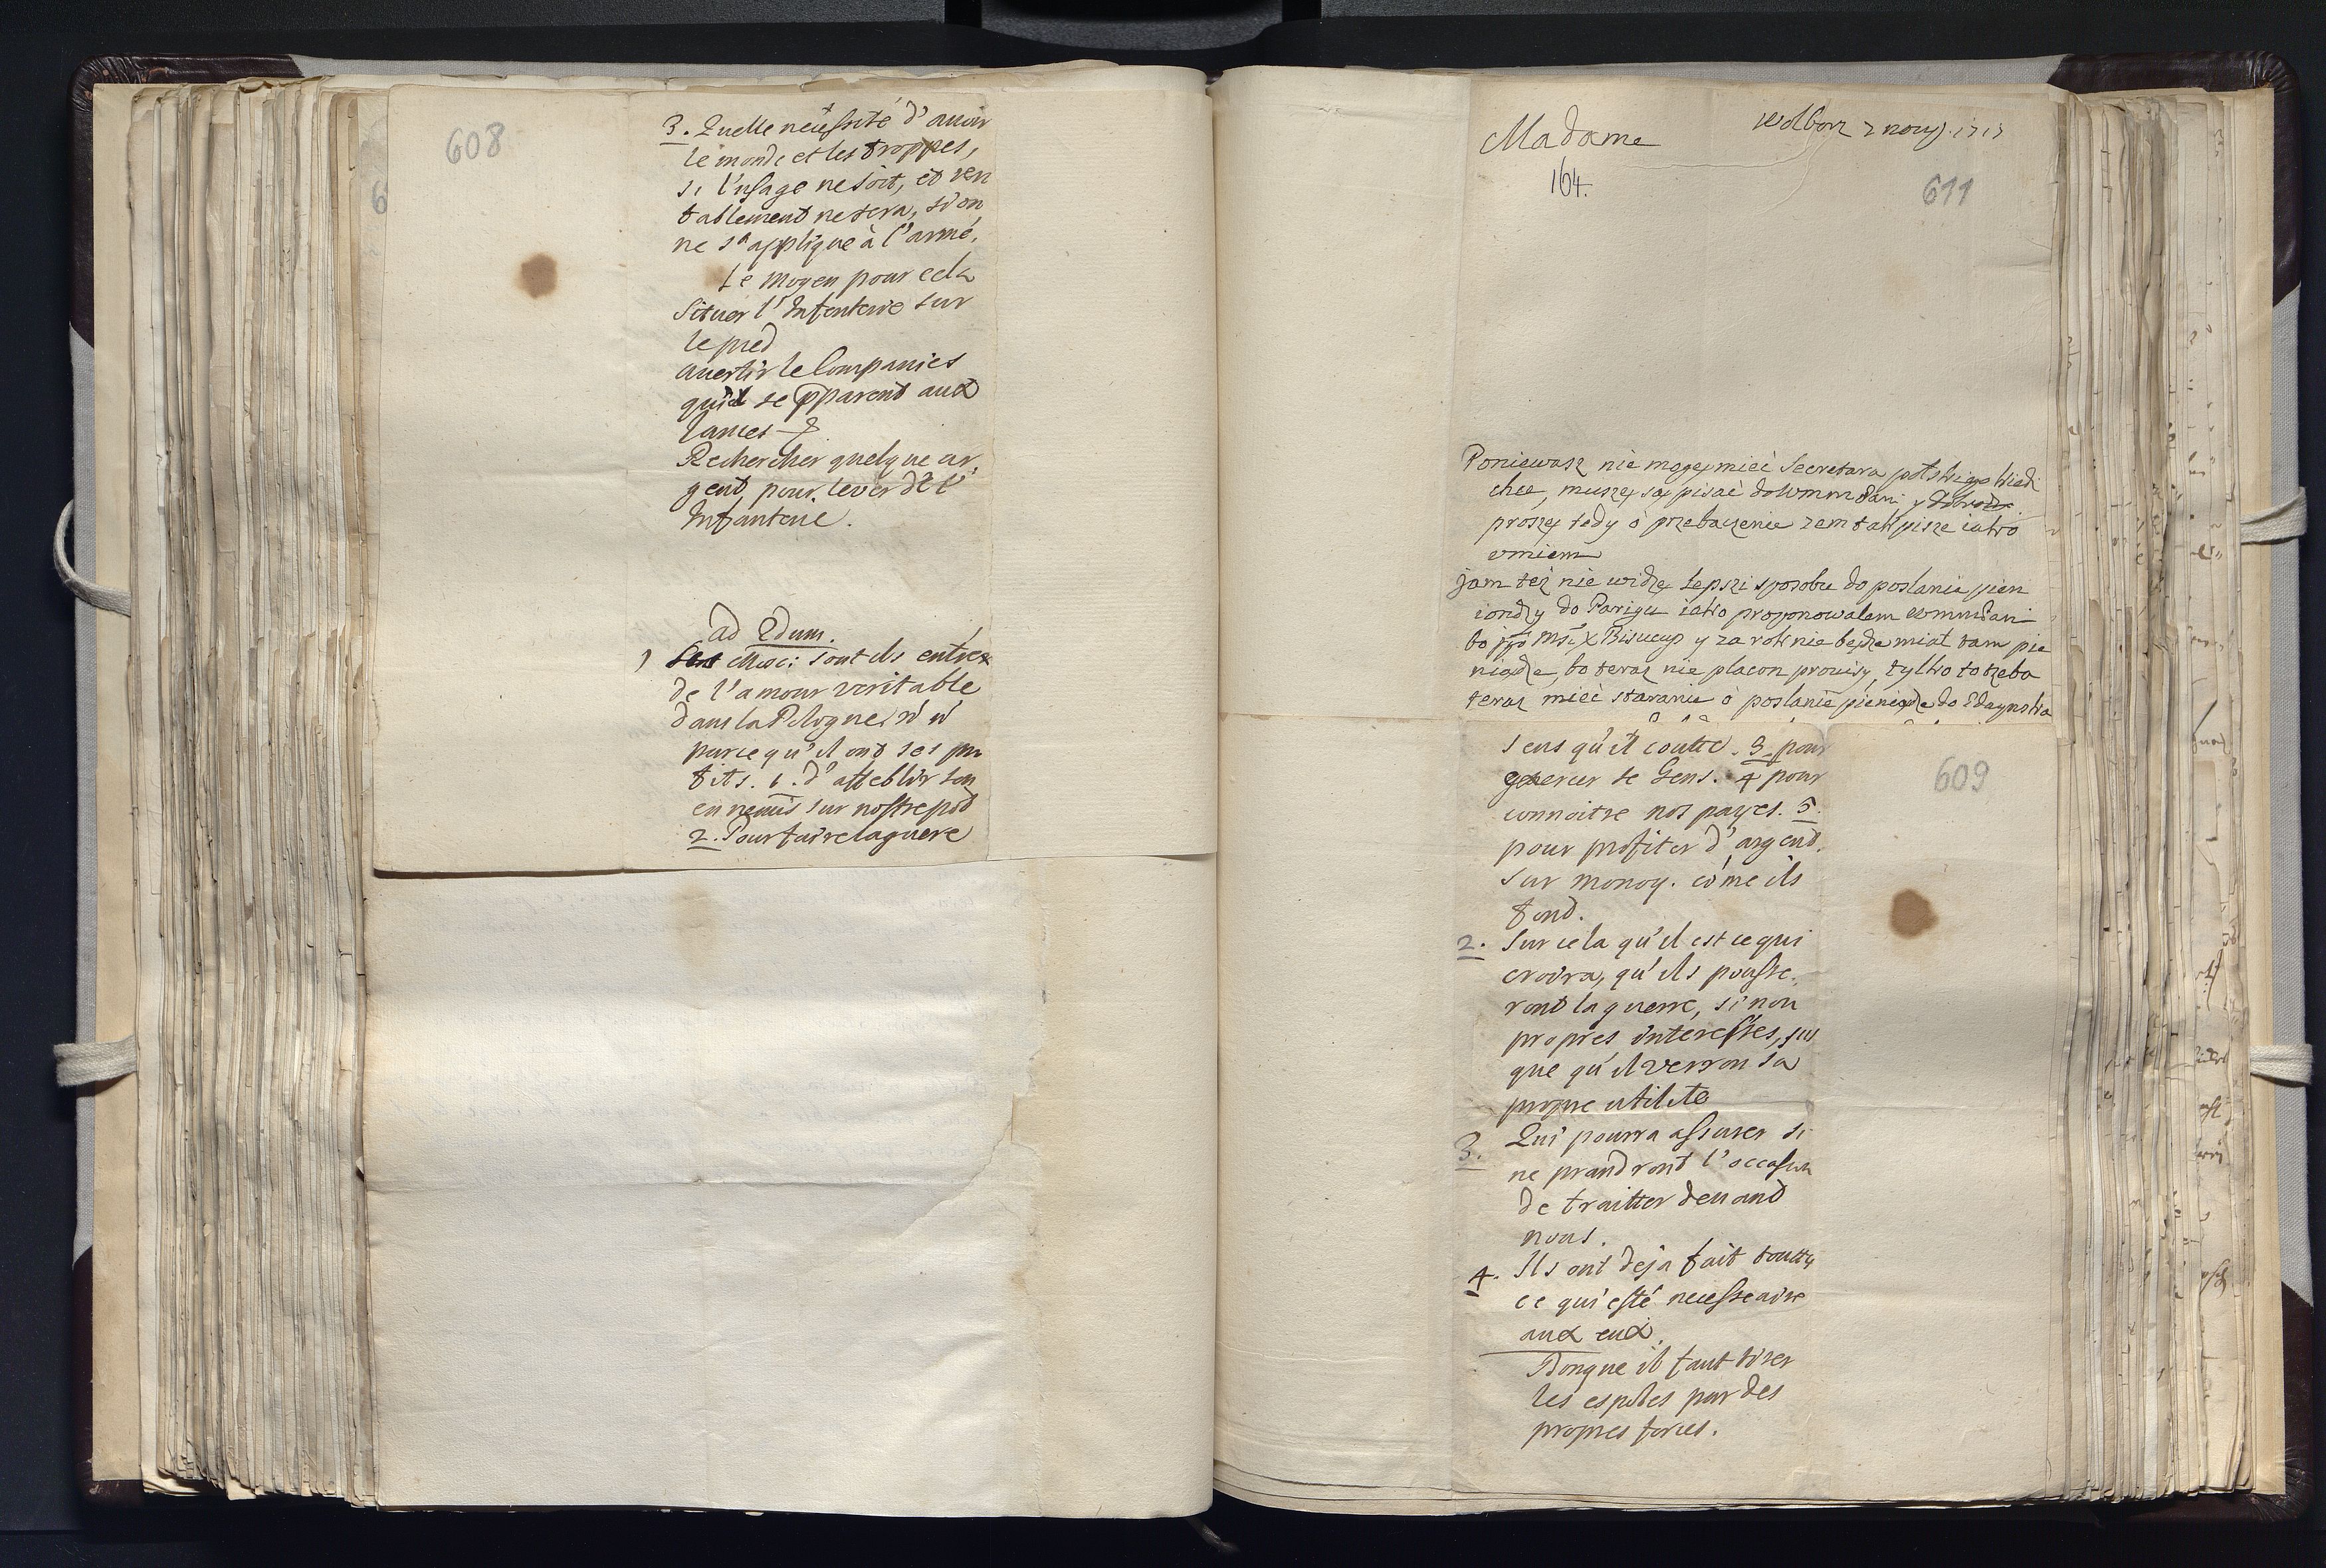 608
3. Quelle neċessité d'auoir
le monde et les troppes,
si l'usage ne soit, et veri
tablement ne sera, si on
ne s'applique à l'armé.
Le moyen pour cela
Situer l'Infenterie sur
le pied
auertir le Companies
qu'il se pparent aux
lances
Rechercher quelque ar
gent pour lever de l'
Infanterie.
ad 2dum.
1 Mosc: sont ils entrez
de l'amour veritable
dans la Pologne
parcequ'il ont ses pro
fits. 1. d'affeblir son
ennemis sur nostre pod
2. Pour faire la guere
Madame
Wolborz 2 1717
164.
611
Poniewasz nie mogę mieć Secretara polskiego kiedi
chce, muszę są pisać do Wmm Pani y
proszę tedy o przebaczenie zem tak pisze iako
vmiem
jam też nie widzę lepszi sposobu do poslania pien
iondzy do Parigu iako proponowalem Wmm Pani
bo jgo Mść X Biscup y za rok nie będze mial tam pie
niądze, bo teraz nie placon prowisy, tylko to trzeba
teraz mieć staranie o poslanie pieniądze do Gdaynska
609
sens qu'il coutte. 3. pour
exercer se Gens. 4 pour
connoitre nos payes. 5.
pour profiter d'argent.
sur monoy. cóme ils
font.
2. Sur cela qu'il est ce qui
croira, qu'ils pousse,
ront la guerre, si non
propres interesses, jus
que qu'il verron sa
propre utilite
3. Qui pourra assurer si
ne prandront l'occasion
de traitter deuant
nous.
4. Ils ont deja fait toutte
ce qui esté necesseaire
aux eux.
Donque il faut tirer
les espoles par des
propres forces.